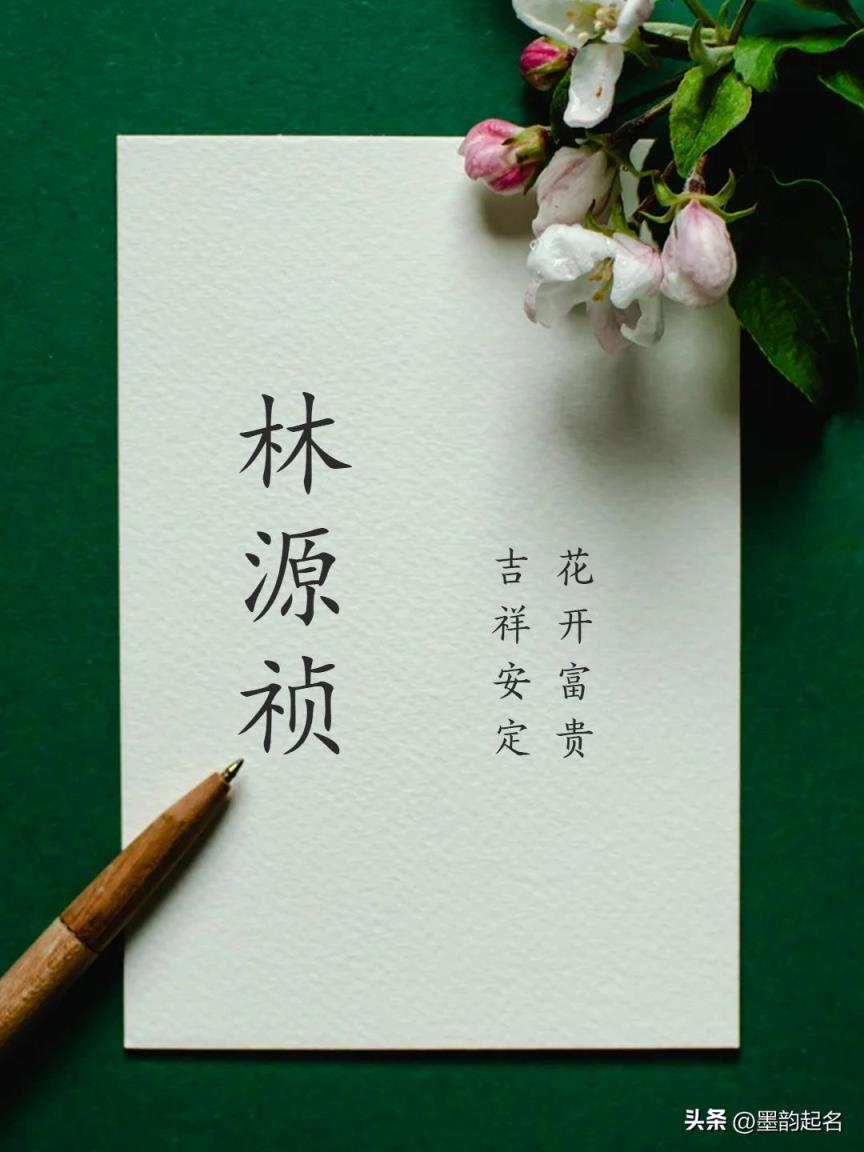 林源祯
花开富贵
吉祥安定
头条 @墨韵起名